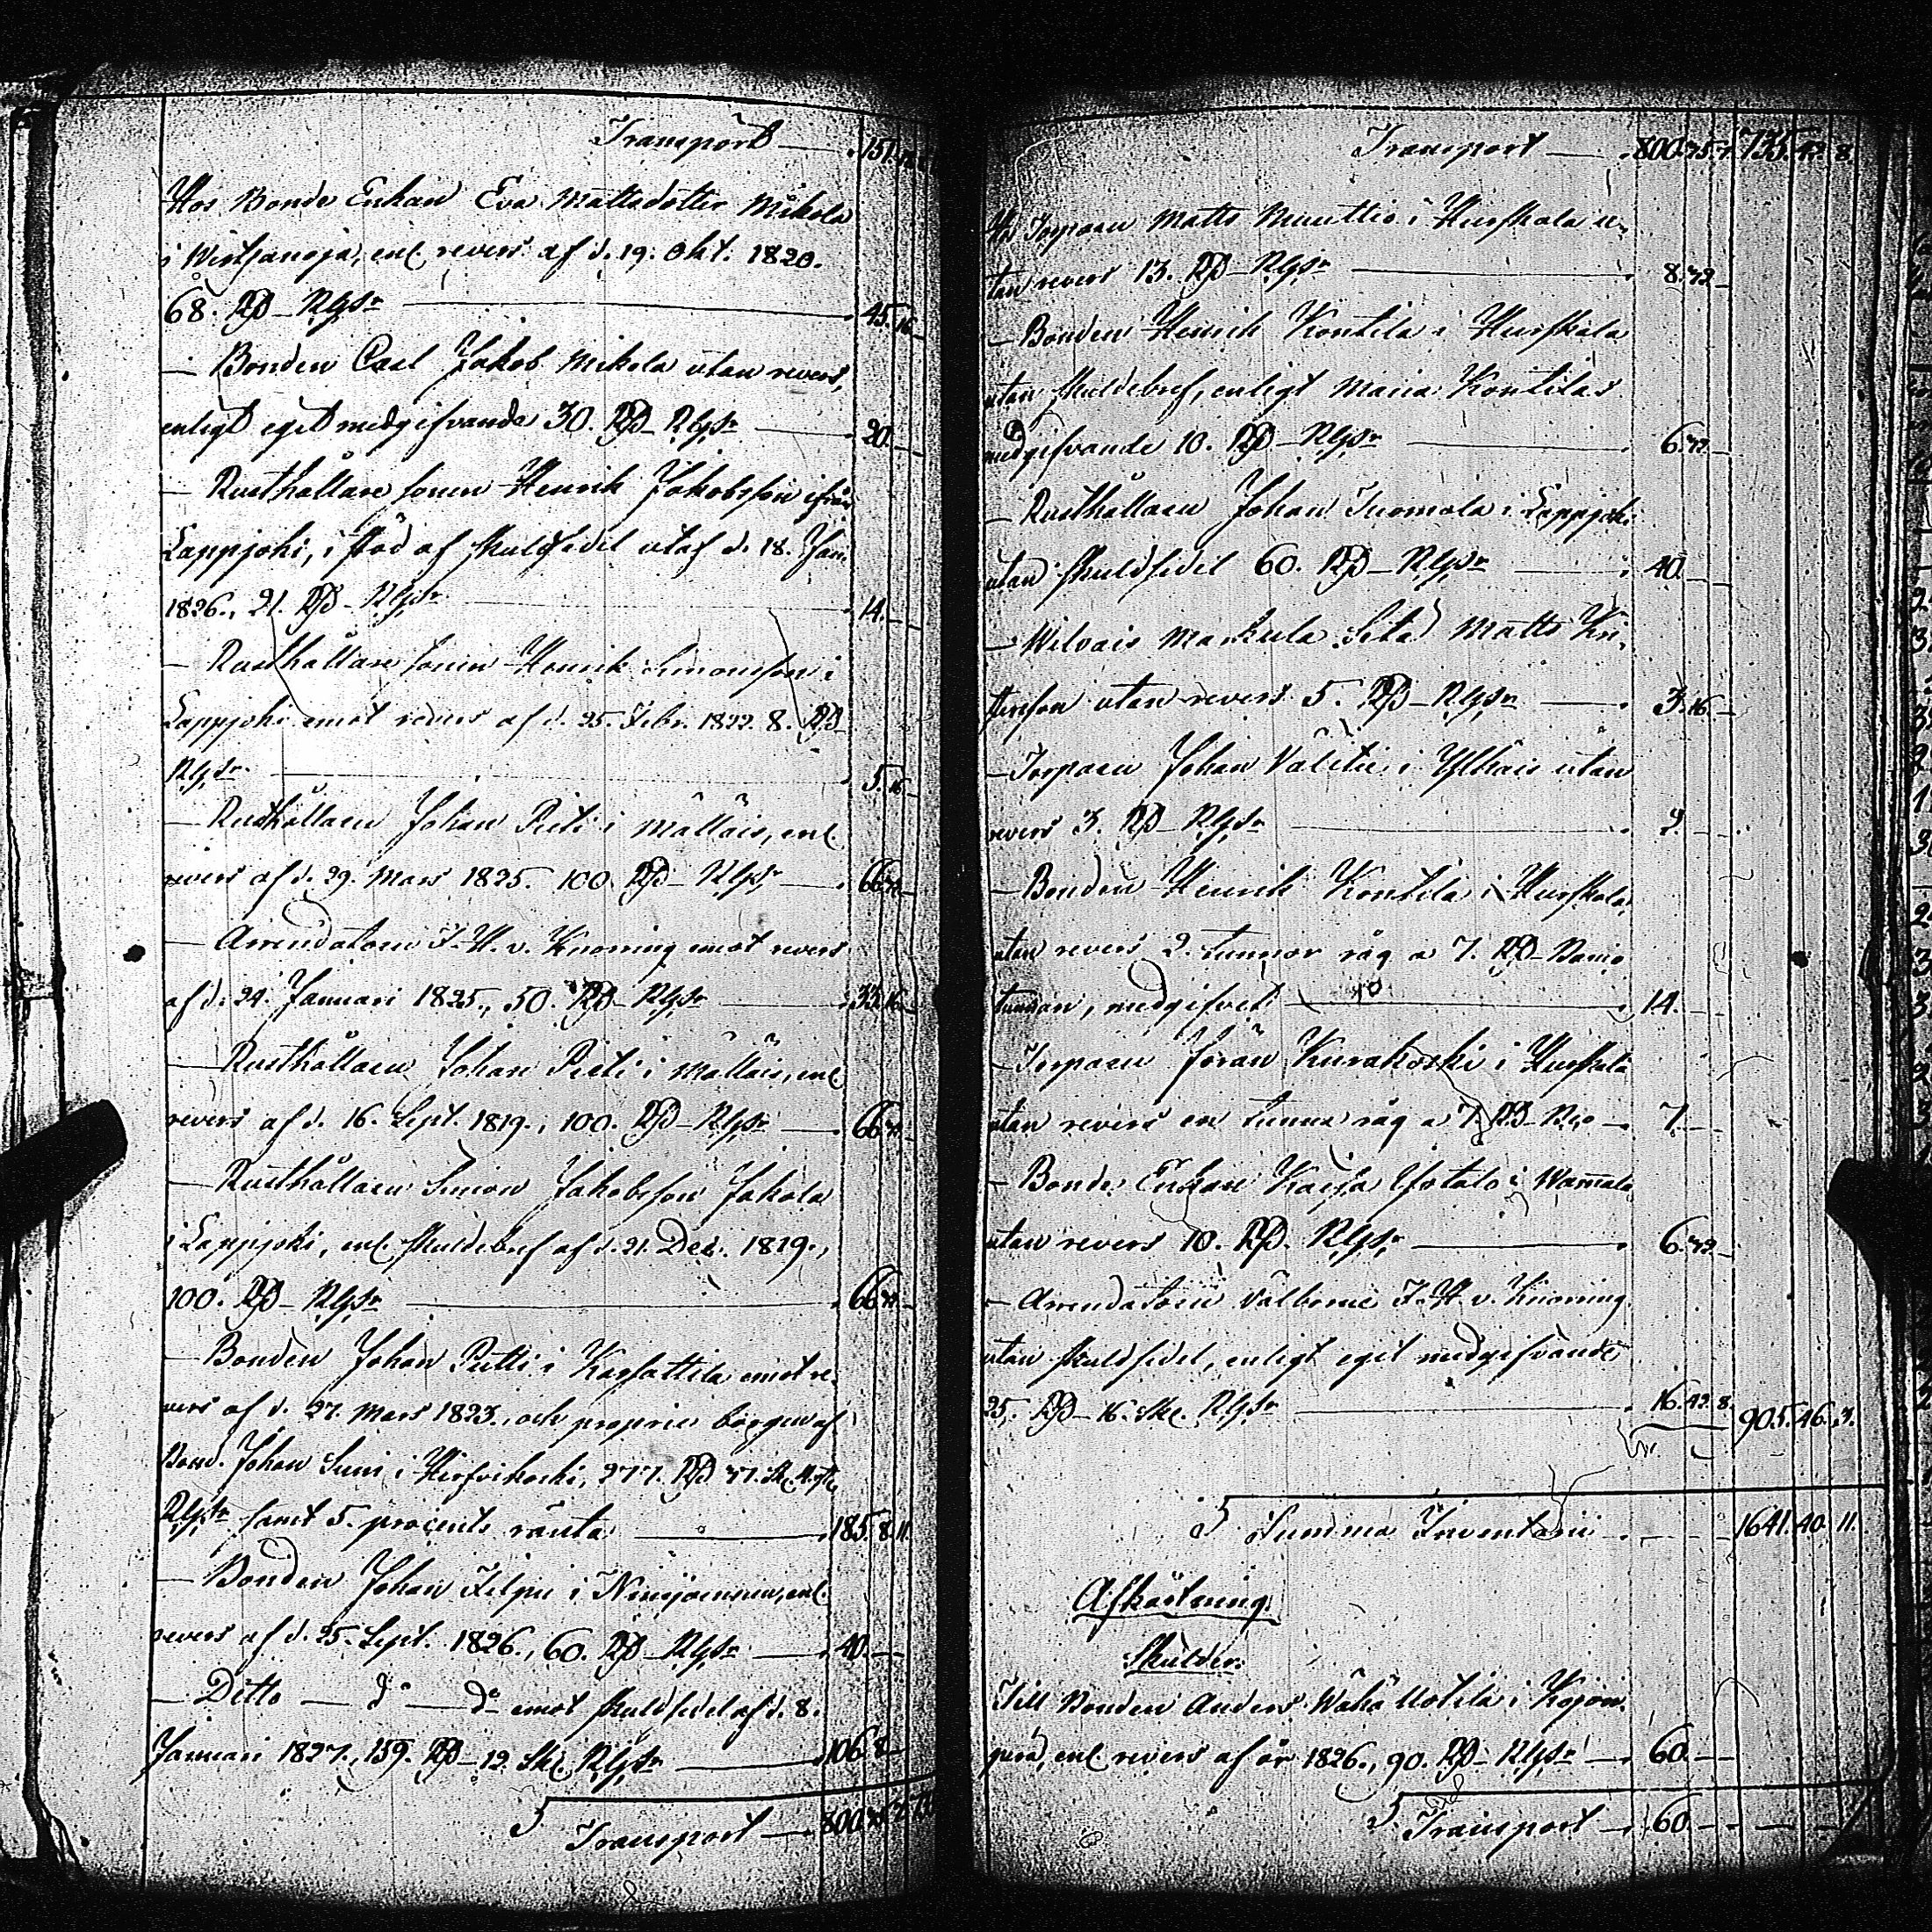 Transport — 151.
Hos Bonde Enkan Eva Mattsdotter Mikola
i Wirtsanoja, enl. revers af d. 19. Okt. 1820.
68. RD Rgs — 45. 16
— Bonden Carl Jakob Mikola utan revers,
enligt eget medgifvande 30. RD Rgs — 20.
— Rusthållare sonen Henrik Jakobsson ifrån
Lappjoki, i stöd af skuldsedel utaf d. 18. Jan.
1826., 21. RD Rgs — 14.
— Rusthållare sonen Henrik Simonsson i
Lappjoki emot revers af d. 25. Febr. 1822. 8. RD
Rgs — 5. 16
— Rusthållaren Johan Pieti i Mälläis, enl.
revers af d. 29. Mars 1825. 100 RD Rgs — 66. 32
— Arrendatorn F. H. v. Knorring emot revers
af d. 24. Januari 1825., 50. RD Rgs — 33. 16
— Rusthållaren Johan Pieti i Mälläis, enl.
revers af d. 16. Sept. 1819., 100. RD Rgs — 66. 32
— Rusthållaren Simon Jakobsson Jakola
i Lappjoki, enl. skuldebref af d. 21. Dec. 1819.,
100. RD Rgs — 66. 32
— Bonden Johan Putti i Karsattila emot re-
vers af d. 27. Mars 1823., och proprie borgen af
Bond. Johan Suni i Hirfvikoski, 277. RD 37. Sk.
Rgs samt 5. procents ränta — 185. 8. 11.
— Bonden Johan Filpu i Ninijoensuu, enl.
revers af d. 25. Sept. 1826., 60. RD Rgs — 40. —
— Ditto — do — do emot skuldsedel af d. 8.
Januari 1827., 159. RD 12. Sk. Rgs — 106. 8
Transport — 800. 35. 7.
Transport — 800. 35. 7. 735. 42. 8.
Hs Torparen Matts Muuttio i Hurskala u-
tan revers 13. RD Rgs — 8. 32
— Bonden Henrik Konttila i Hurskala
utan skuldebref, enligt Maria Konttilas
medgifvande 10. RD Rgs — 6. 32
— Rusthållaren Johan Tuomola i Lappjoki
utan skuldsedel 60. RD Rgs — 40.
— Wilvais Markula Sita Matts Kri-
stersson utan revers 5. RD Rgs — 3. 16
— Torparen Johan Välitie i Yllhäis utan
revers 3. RD Rgs — 2.
— Bonden Henrik Konttila i Hurskala,
utan revers 2. tunnor råg a 7. RD Banco
tunnan, medgifvet — 14.
— Torparen Jöran Kurakoski i Hurskala
utan revers en tunna råg a 7. RD Bco — 7.
— Bonde Enkan Kaisa Ysotalo i Wammala
utan revers 10. RD Rgs — 6. 32
— Arrendatorn Välborne F. H. v. Knorring
utan skuldsedel, enligt eget medgifvande
25. RD 16. Sk. Rgs — 16. 42. 8. 905. 46. 3.
Summa Inventarii — 1641. 40. 11.
Afkortning
Skulder.
Till Bonden Anders Wähä Uotila i Kojon-
perä, enl. revers af år 1826., 90. RD Rgs — 60.
Transport — 60.